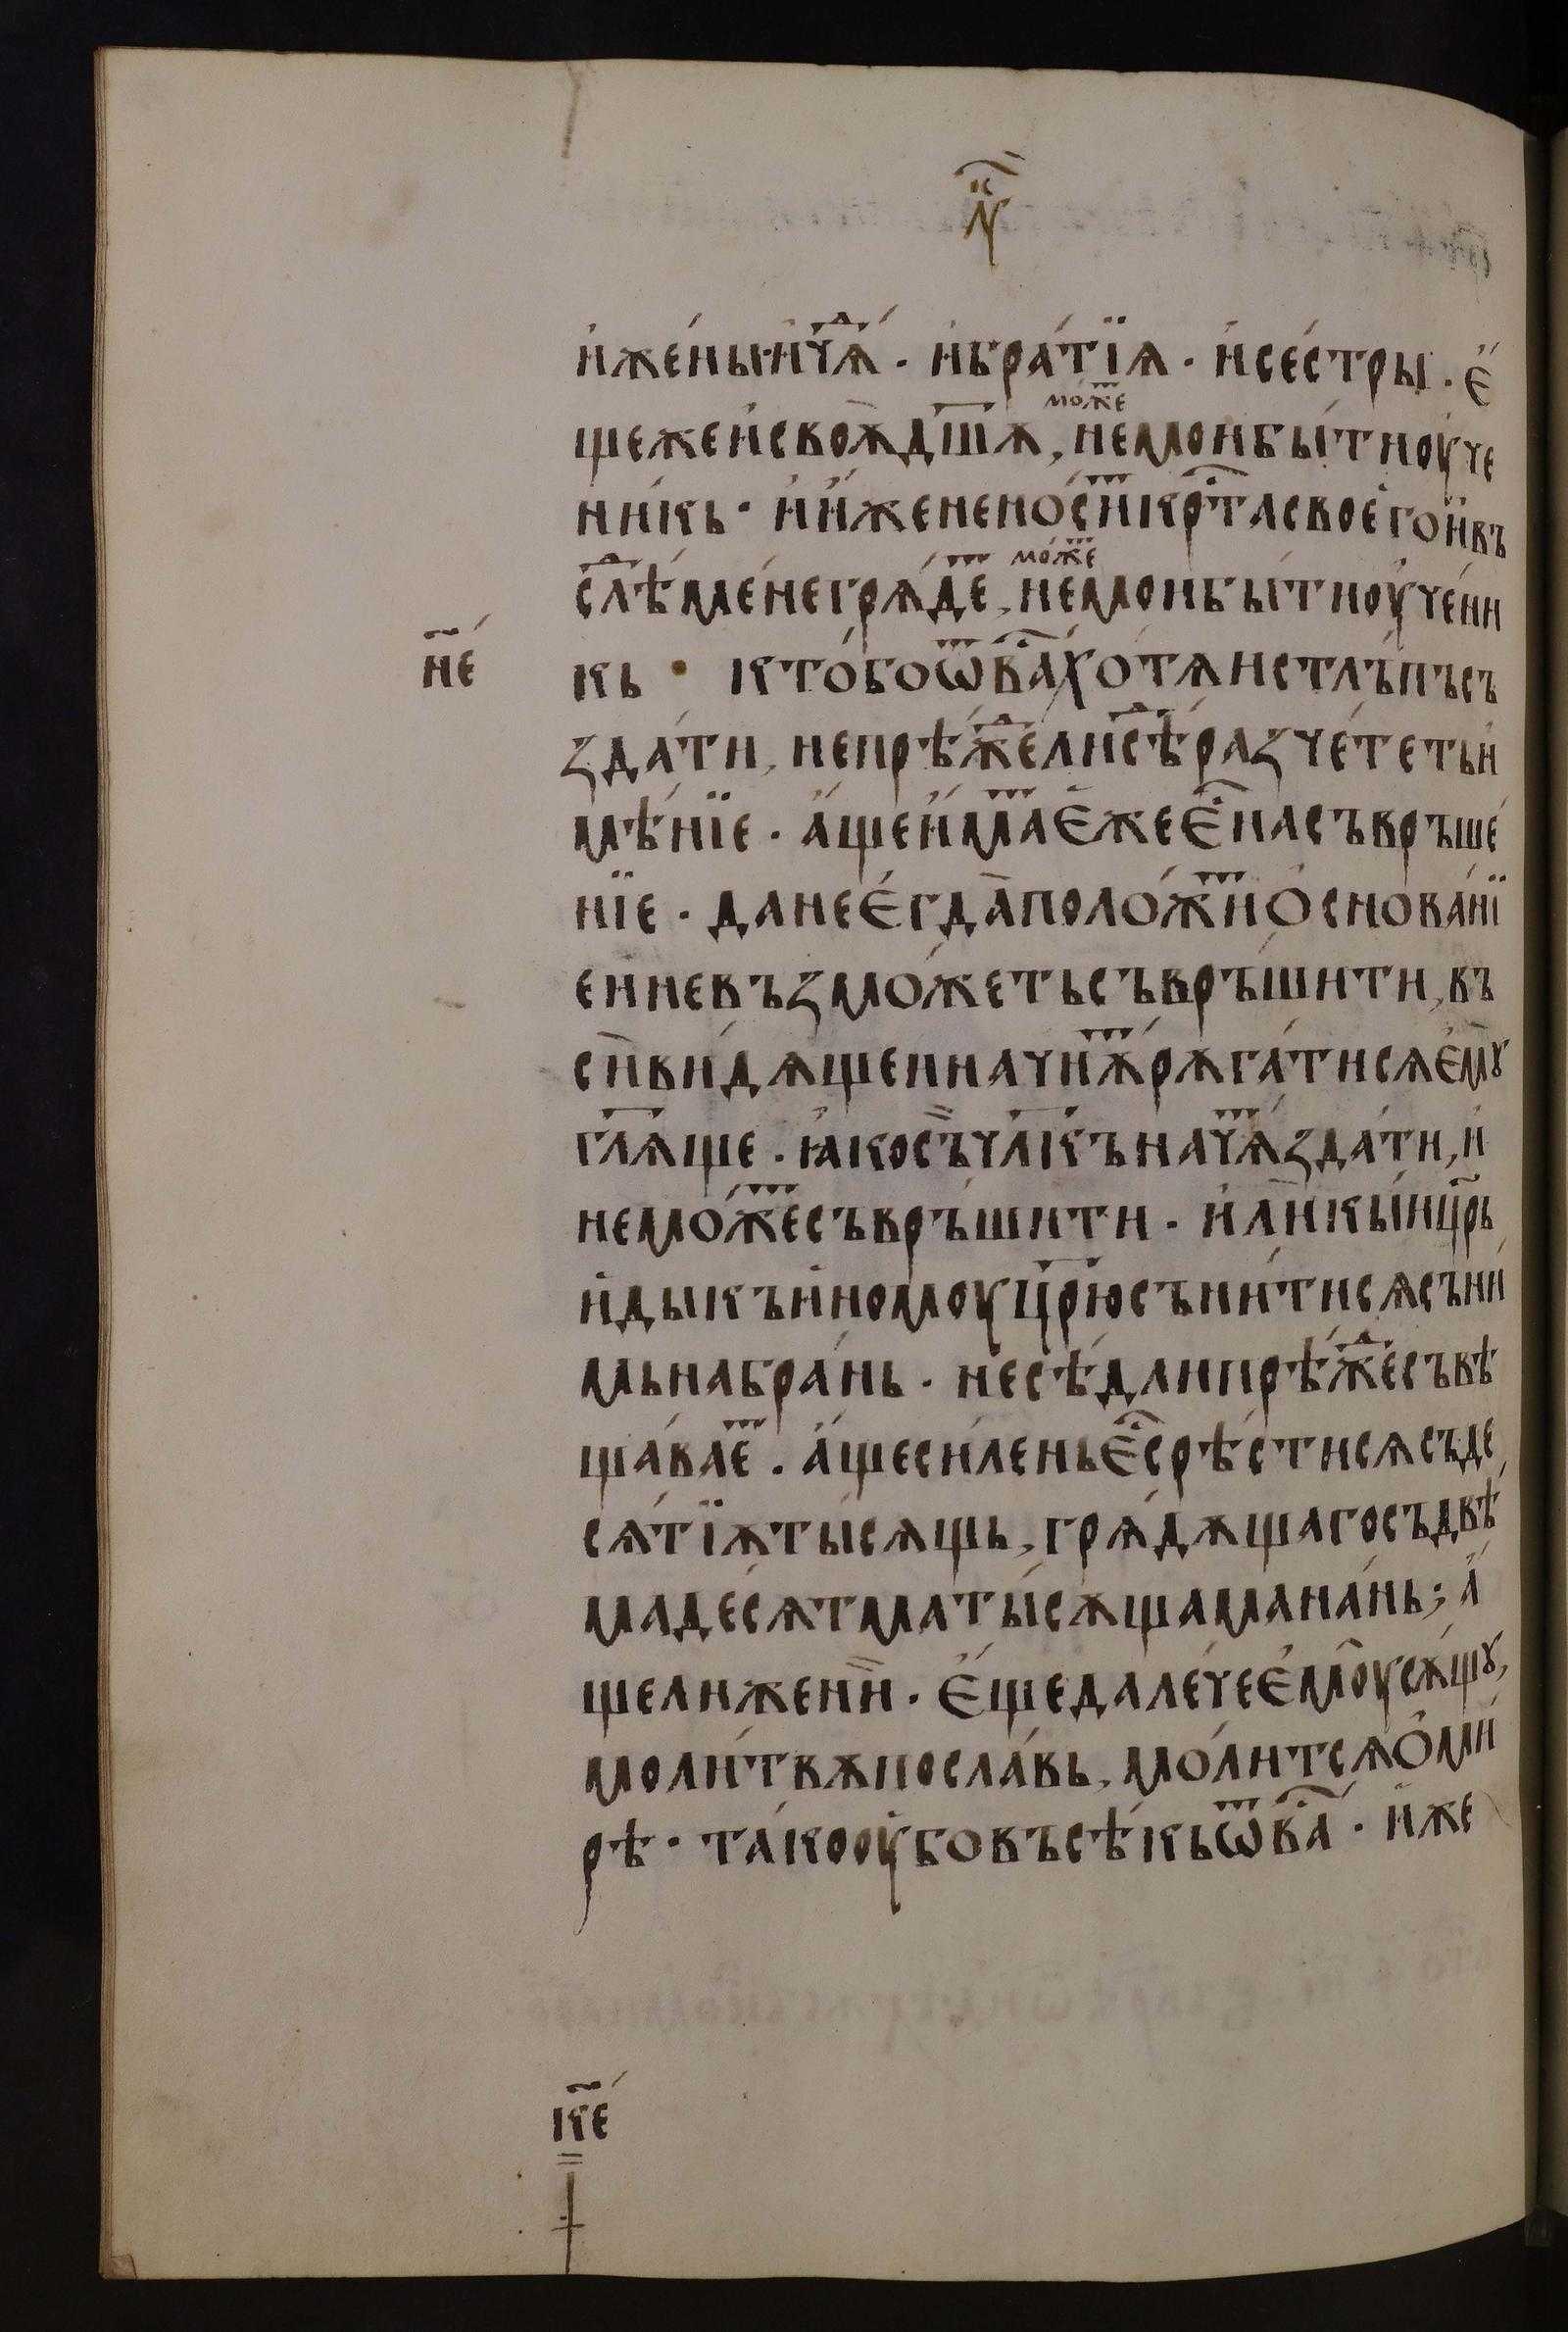 и҆же́ны и҆чѧⷣ҇́ · и҆бра́тїѧ · и҆се́стры · е҆́
може
щежеи҆своѫ̀дш҃ѫ, немои҆бы́тиоу҆че
ни́кь · и҆и҆́жененоⷭ҇́итⷮкрⷭ҇та свое҆го̀и҆въ
може
слѣⷣ҇мене́грѧ́деⷮ, немои҆бы́тиоу҆че́ни
н҃е
кь · кто́боѿваⷭ҇хотѧ́истлъ́пъсъ
зда́ти, непрѣ́жⷣели҆сѣⷣ́разчте́тетьи҆
мѣ́нїе · а҆́щеи҆́маⷮе҆́жее҆ⷭ҇насъвръше́
нїе · данее҆гда̀поло́житⷮо҆снова́нї
еи҆невъзмо́жетьсъвръши́ти, въ
сѝви́дѧщеиначнѫⷮрѫга́тисѧе҆мꙋ̀
гл҃ѫще · ꙗ҆́косъ̏чл҃къначѧⷮзда́ти, и҆
немо́жеⷮсъвръши́ти · и҆лѝкы́ицр҃ь
и҆́дыкъи҆но́моуцр҃ю̀съни́тисѧсъни́
мьнабра́нь · несѣ́длипрѣ́жⷣесъвѣ
ща́ваеⷮ · а҆́щеси́ленье҆ⷭ҇срѣ́стисѧсъде
сѧ́тїѫты́сѧщь, грѧдѫ́щагосъдвѣ́
мадесѧ́тматы́сѫщаманань; а҆́
щелижени̏ · е҆щедале́чее҆моу̀сѫ́щꙋ,
моли́твѫпосла́вь, мо́литсѧо҆ми́
рѣ · та́кооу҆бовъсѣ́кьѿваⷭ҇ · и҆́же
к҃е